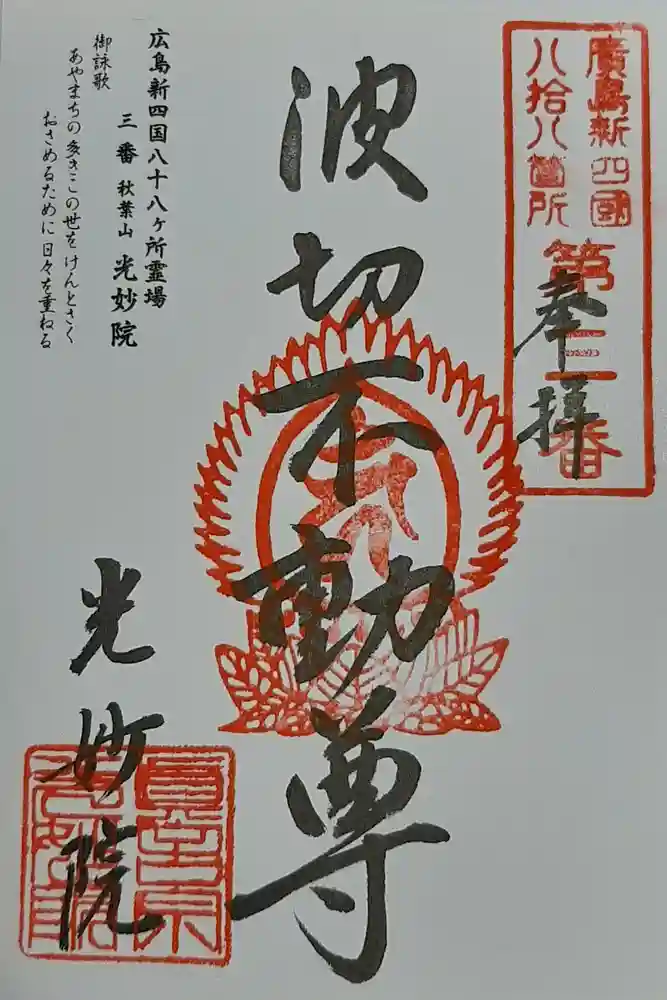 廣島新四國
八拾八箇所
第三番
奉拝
波切不動尊
広島新四国八十八ヶ所霊場
三番 秋葉山 光妙院
御詠歌
あやまちの多きこの世をけんとさく
おさめるために日々を重ねる
光妙院
真言宗
光妙院